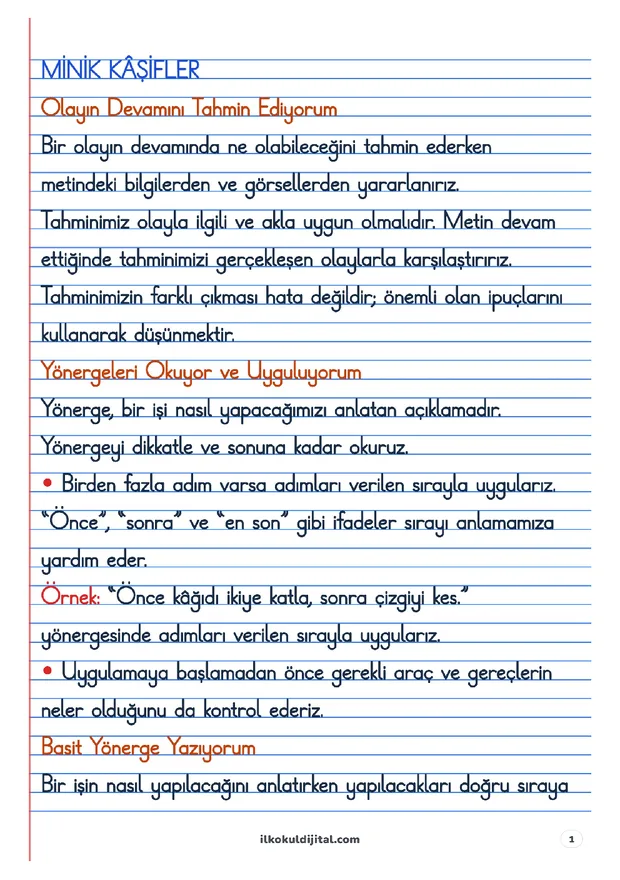 MİNİK KÂŞİFLER
Olayın Devamını Tahmin Ediyorum
Bir olayın devamında ne olabileceğini tahmin ederken
metindeki bilgilerden ve görsellerden yararlanırız.
Tahminimiz olayla ilgili ve akla uygun olmalıdır. Metin devam
ettiğinde tahminimizi gerçekleşen olaylarla karşılaştırırız.
Tahminimizin farklı çıkması hata değildir; önemli olan ipuçlarını
kullanarak düşünmektir.
Yönergeleri Okuyor ve Uyguluyorum
Yönerge, bir işi nasıl yapacağımızı anlatan açıklamadır.
Yönergeyi dikkatle ve sonuna kadar okuruz.
• Birden fazla adım varsa adımları verilen sırayla uygularız.
“Önce”, “sonra” ve “en son” gibi ifadeler sırayı anlamamıza
yardım eder.
Örnek: “Önce kâğıdı ikiye katla, sonra çizgiyi kes.”
yönergesinde adımları verilen sırayla uygularız.
• Uygulamaya başlamadan önce gerekli araç ve gereçlerin
neler olduğunu da kontrol ederiz.
Basit Yönerge Yazıyorum
Bir işin nasıl yapılacağını anlatırken yapılacakları doğru sıraya
ilkokuldijital.com
1